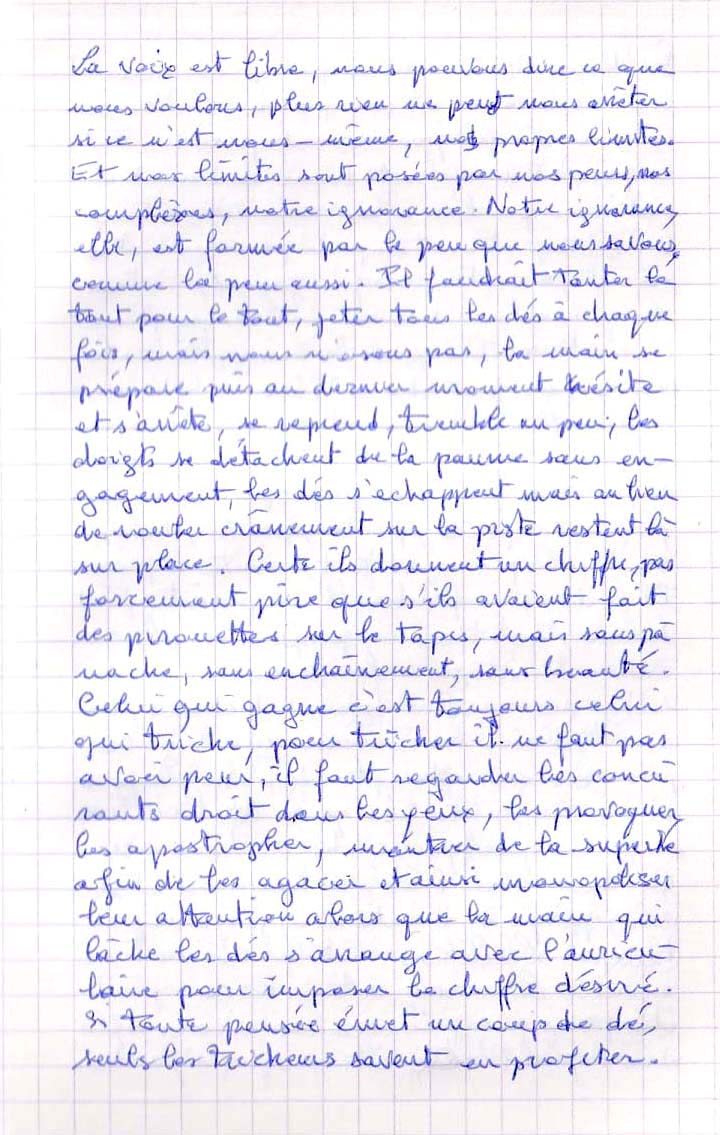 La voix est libre, nous pouvons dire ce que
nous voulons, plus rien ne peut nous arrêter
si ce n'est nous-même, nos propres limites.
Et nos limites sont posées par nos peurs, nos
complexes, notre ignorance. Notre ignorance,
elle, est formée par le peu que nous savons,
comme la peur aussi. Il faudrait tenter le
tout pour le tout, jeter tous les dés à chaque
fois, mais nous n'osons pas, la main se
prépare puis au dernier moment hésite
et s'arrête, se reprend, tremble un peu, les
doigts se détachent de la paume sans en-
gagement, les dés s'échappent mais au lieu
de rouler crânement sur la piste restent là
sur place. Certe ils donnent un chiffre, pas
forcement pire que s'ils avaient fait
des pirouettes sur le tapis, mais sans pa
nache, sans enchaînement, sans beauté.
Celui qui gagne c'est toujours celui
qui triche, pour tricher il ne faut pas
avoir peur, il faut regarder les concu
rents droit dans les yeux, les provoquer,
les apostropher, montrer de la superbe
afin de les agacer et ainsi monopoliser
leur attention alors que la main qui
lâche les dés s'arrange avec l'auricu-
laire pour imposer le chiffre désiré.
Si toute pensée émet un coup de dé,
seuls les tricheurs savent en profiter.